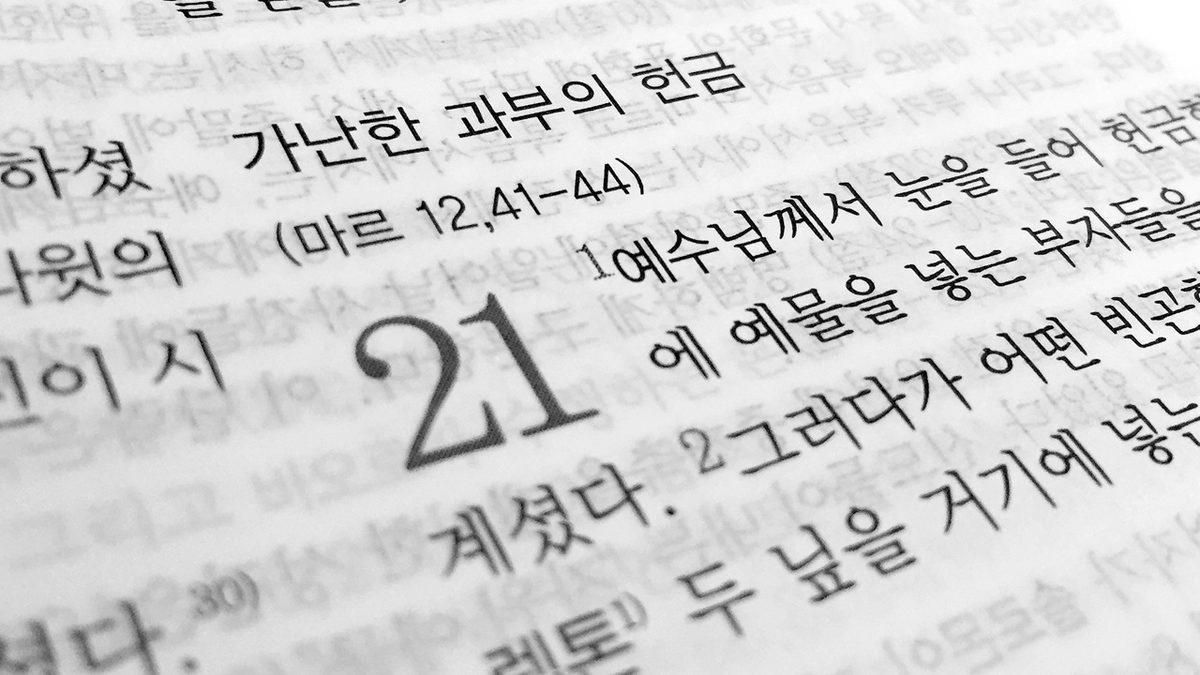 하셨
나윗의
이 시
셨다.30)
가난한 과부의 헌금
(마르 12,41-44)
21
1예수님께서 눈을 들어 헌금
에 예물을 넣는 부자들을
계셨다. 2그러다가 어떤 빈곤
렙톤1) 두 닢을 거기에 넣는